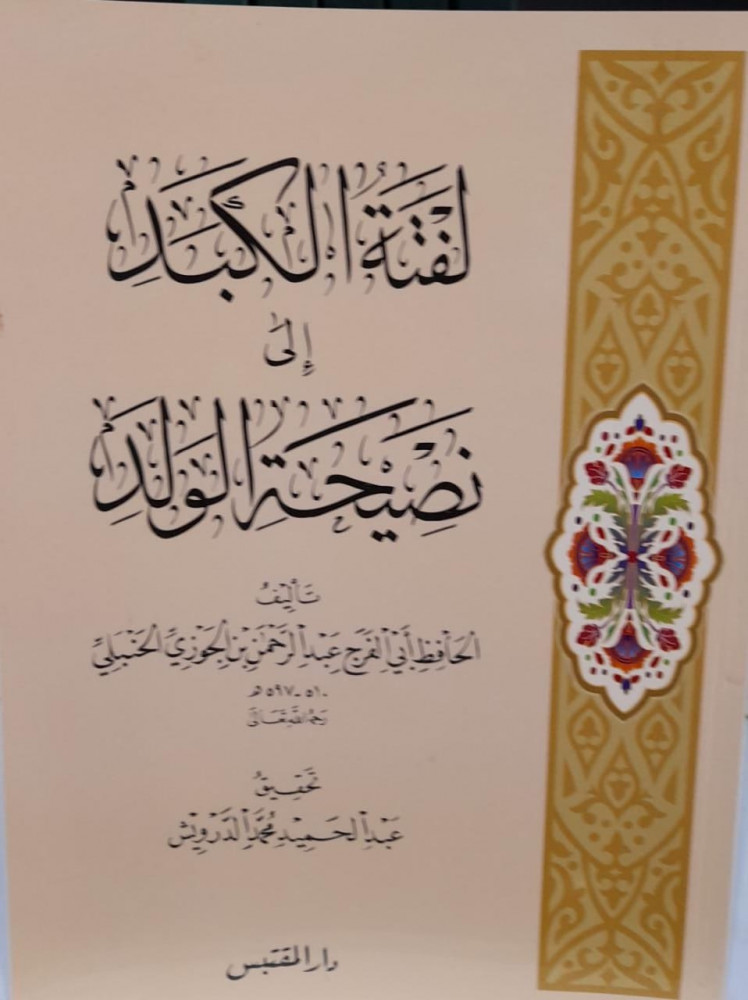 لَفْتَةُ الْكَبَدِ
إِلَىٰ
نَصِيْحَةِ الْوَلَدِ
تَأليْفُ
الحَافِظِ أَبي الفَرَجِ عَبْدِ الرَّحْمٰنِ بْنِ الجَوْزِيِّ الحَنْبَلِيِّ
٥١٠ - ٥٩٧ هـ
رَحِمَهُ اللهُ تَعَالَىٰ
تَحْقِيقُ
عَبْدِ الحَمِيْدِ مُحَمَّد الدَّرْوِيْش
دار المقتبس